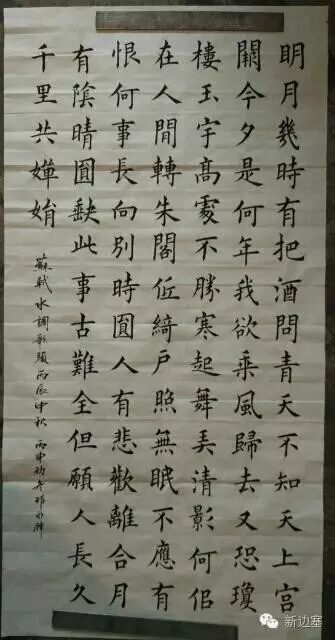 明月幾時有把酒問青天不知天上宮
闕今夕是何年我欲乘風歸去又恐瓊
樓玉宇高處不勝寒起舞弄清影何佀
在人間轉朱閣低綺戶照無眠不應有
恨何事長向別時圓人有悲歡離合月
有陰晴圓缺此事古難全但願人長久
千里共嬋娟
蘇軾 水調歌頭 丙辰中秋 丙申
新边塞